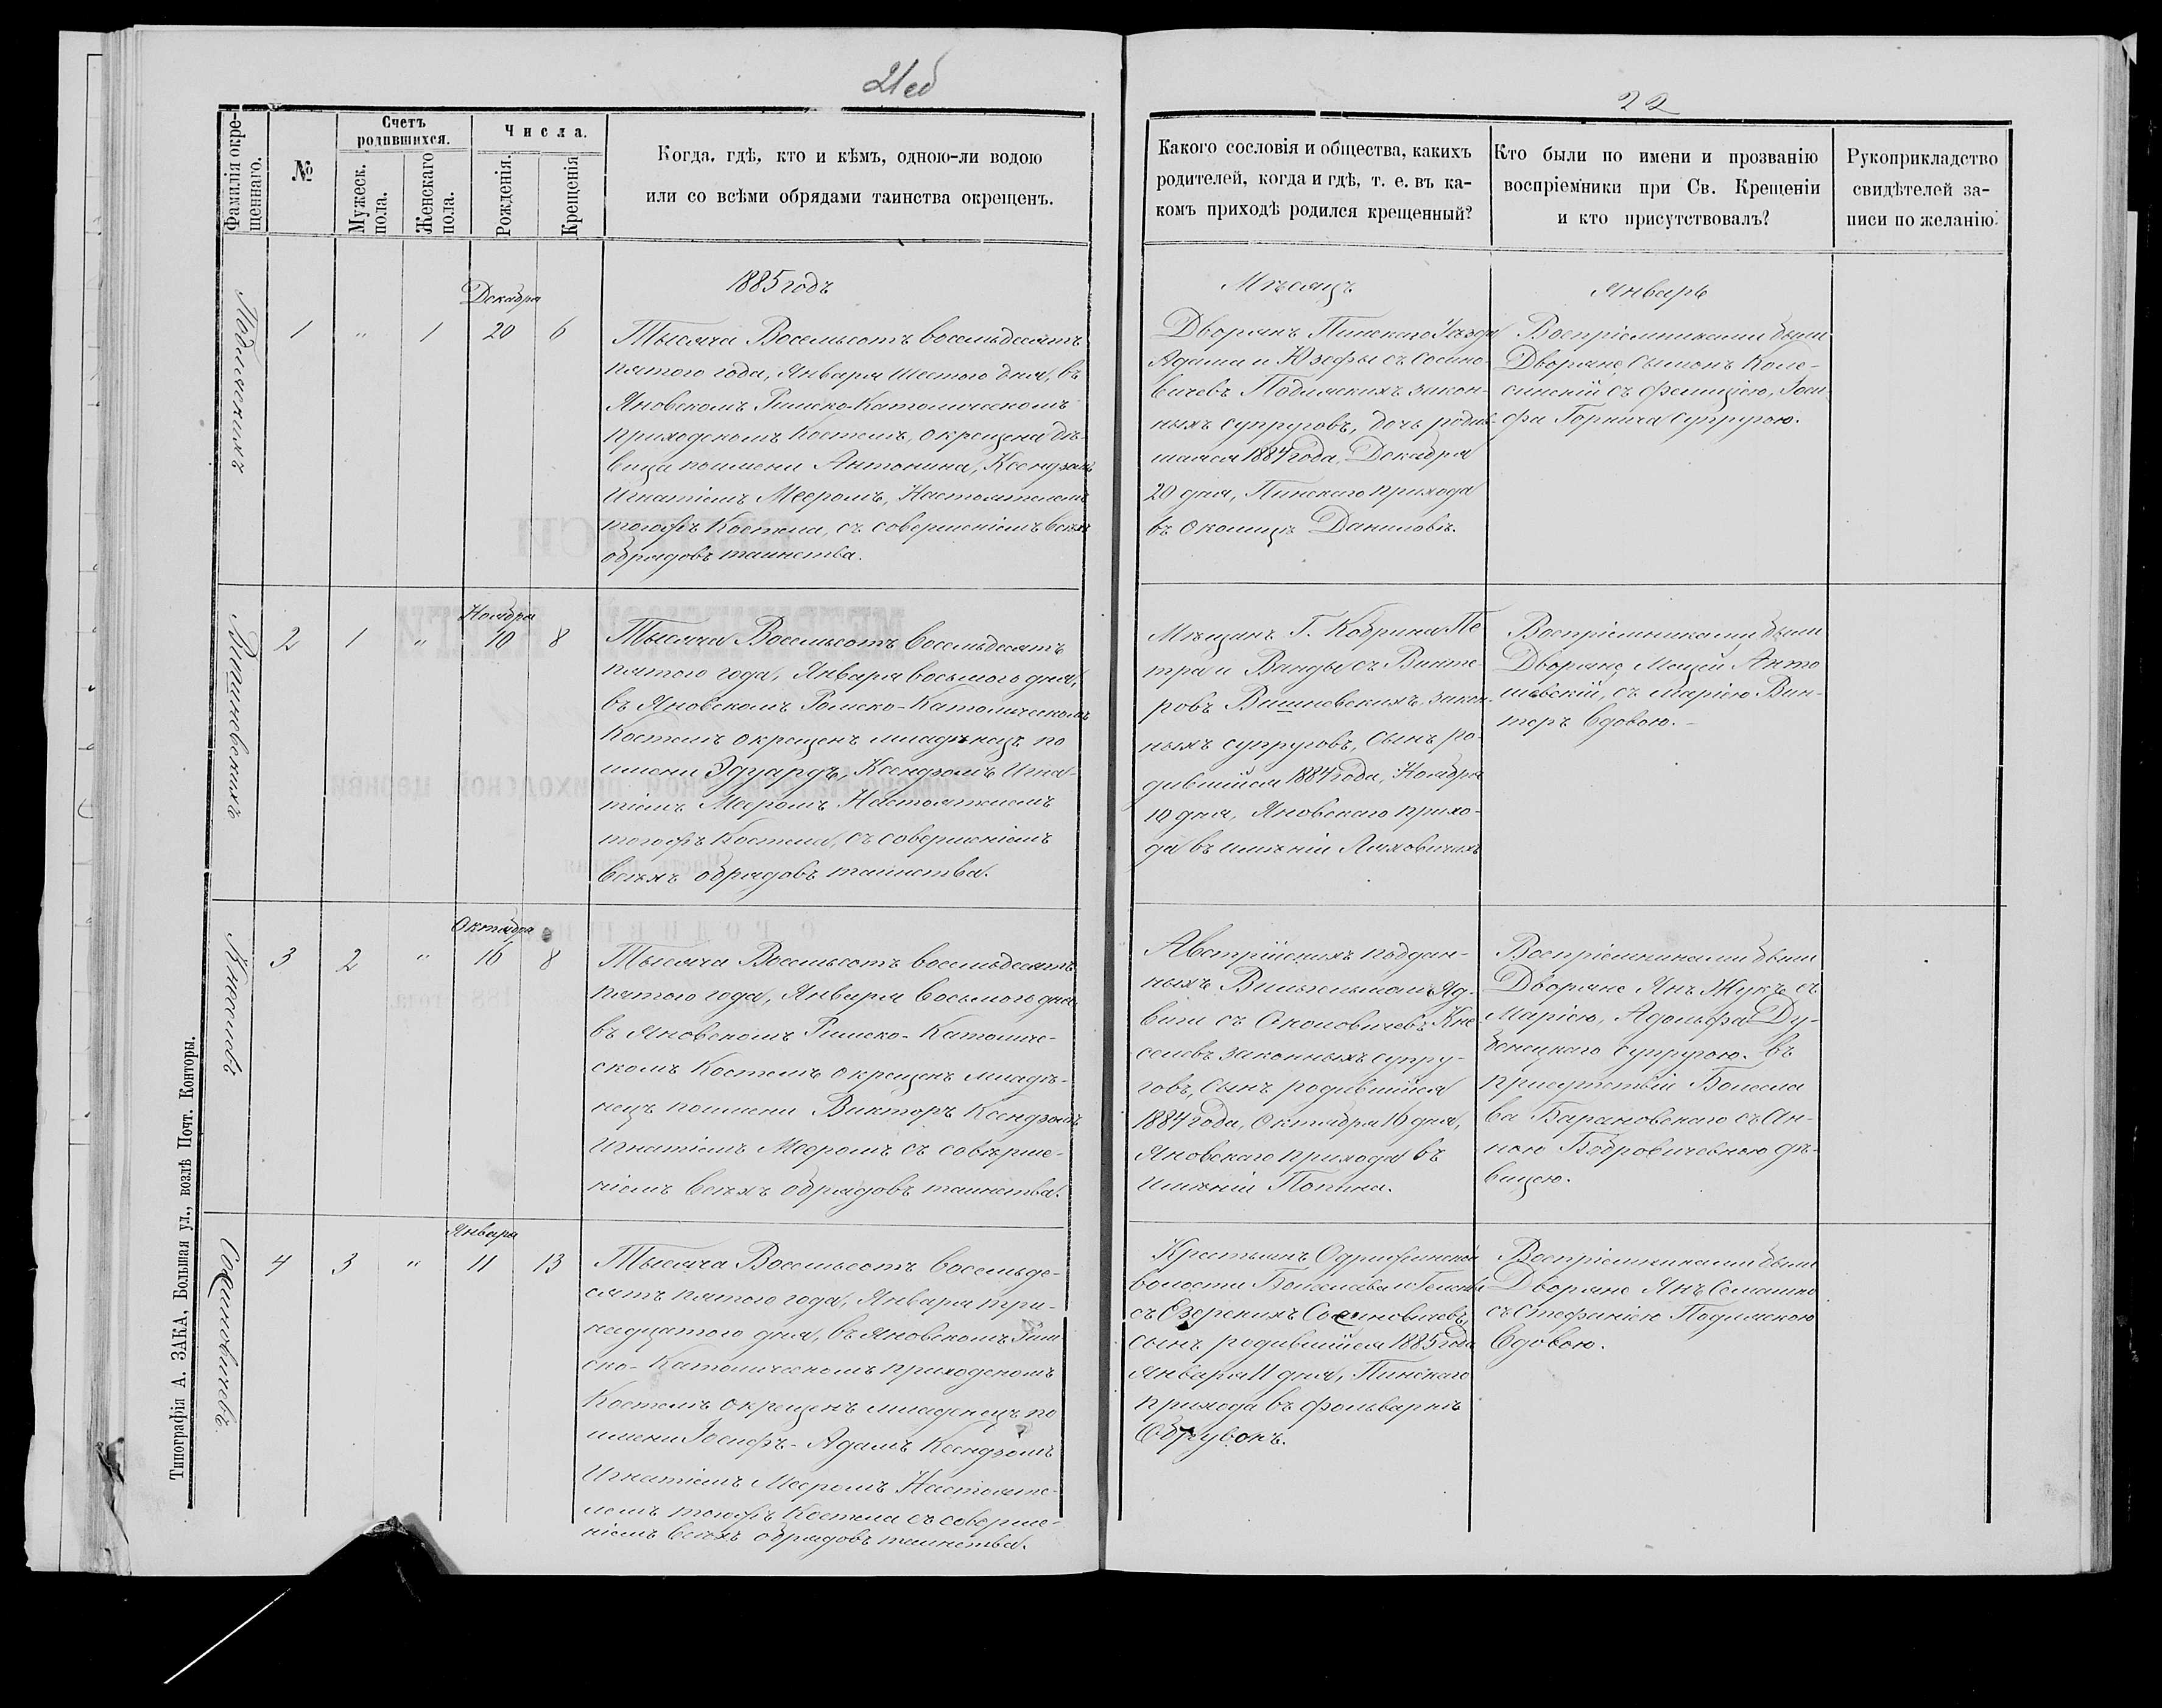 21 об
22
Фамилія окре-
щеннаго.
№
Счетъ
родившихся.
Мужеск.
пола.
Женскаго
пола.
Числа.
Рожденія.
Крещенія
Когда, гдѣ, кто и кѣмъ, одною-ли водою
или со всѣми обрядами таинства окрещенъ.
Какого сословія и общества, какихъ
родителей, когда и гдѣ, т. е. въ ка-
комъ приходѣ родился крещенный?
Кто были по имени и прозванію
воспріемники при Св. Крещеніи
и кто присутствовалъ?
Рукоприкладство
свидѣтелей за-
писи по желанію.
1885 годъ
Мѣсяцъ
Январь
Подлясскихъ
1 " 1
Декабря
20 6
Тысяча Восемьсотъ восемьдесятъ
пятого года, Января шестого дня, въ
Яновскомъ Римско-Католическомъ
приходскомъ Костелѣ, окрещена дѣ-
вица по имени Антонина, Ксендзомъ
Игнатіемъ Мееромъ, Настоятелемъ
тогожъ Костела, съ совершеніемъ всѣхъ
обрядовъ таинства.
Дворянъ Пинскаго Уѣзда
Адама и Юзефы съ Сосино-
вичевъ закон-
ныхъ супруговъ, дочь родив-
шаяся 1884 года, Декабря
20 дня, Пинскаго прихода
въ околицѣ Даниловѣ.
Воспріемниками были
Дворяне Сымонъ Коле-
синскій съ Фелиціею, Іоси-
фа Горнича супругою.
Вишневскихъ
2 1 "
Ноября
10 8
Тысяча Восемьсотъ восемьдесятъ
пятого года, Января восьмого дня,
въ Яновскомъ Римско-Католическомъ
Костелѣ окрещенъ младенецъ по
имени Эдуардъ, Ксендзомъ Игна-
тіемъ Мееромъ Настоятелемъ
тогожъ Костела, съ совершеніемъ
всѣхъ обрядовъ таинства.
Мѣщанъ Г. Кобрина Пе
тра и Ванды съ Винте-
ровъ Вишневскихъ закон-
ныхъ супруговъ, сынъ ро-
дившійся 1884 года, Ноября
10 дня, Яновскаго прихо-
да въ имѣніи Ляховичахъ
Воспріемниками были
Дворяне Мацей Анто
шевскій, съ Маріею Вин-
теръ Вдовою.-
Кнеселевъ
3 2 "
Октября
16 8
Тысяча Восемьсотъ восемьдесятъ
пятого года, Января восьмого дня
въ Яновскомъ Римско-Католиче-
скомъ Костелѣ окрещенъ младѣ-
нецъ по имени Викторъ Ксендзомъ
Игнатіемъ Мееромъ съ соверше-
ніемъ всѣхъ обрядовъ таинства.
Австрійскихъ поддан-
ныхъ Вильгельма и Яд-
виги съ Околовичевъ Кне
селевъ законныхъ супру-
говъ, сынъ родившійся
1884 года, Октября 16 дня,
Яновскаго прихода въ
имѣніи Попина.
Воспріемниками были
Дворяне Янъ Жукъ съ
Маріею, Адольфа Ду-
бенецкаго супругою. въ
присутствіи Болесла
ва Барановскаго съ Ан-
ною Бобровичевною дѣ-
вицею.
4 3 "
Января
11 13
Тысяча Восемьсотъ восемьде-
сятъ пятого года, Января три-
надцатого дня, въ Яновскомъ Рим
ско-Католическомъ приходскомъ
Костелѣ окрещенъ младенецъ по
имени Іосифъ-Адамъ Ксендзомъ
Игнатіемъ Мееромъ Настояте-
лемъ тогожъ Костела съ соверше-
ніемъ всѣхъ обрядовъ таинства.
Крестьянъ Одрижинской
волости Болеслава и Гелены
съ Езерскихъ
сынъ родившійся 1885 года
Января 11 дня, Пинскаго
прихода въ фольваркѣ
Воспріемниками были
Дворяне Янъ Семашко
съ Стефаніею
Вдовою.
Типографія А. ЗАКА, Большая ул., возлѣ Почт. Конторы.